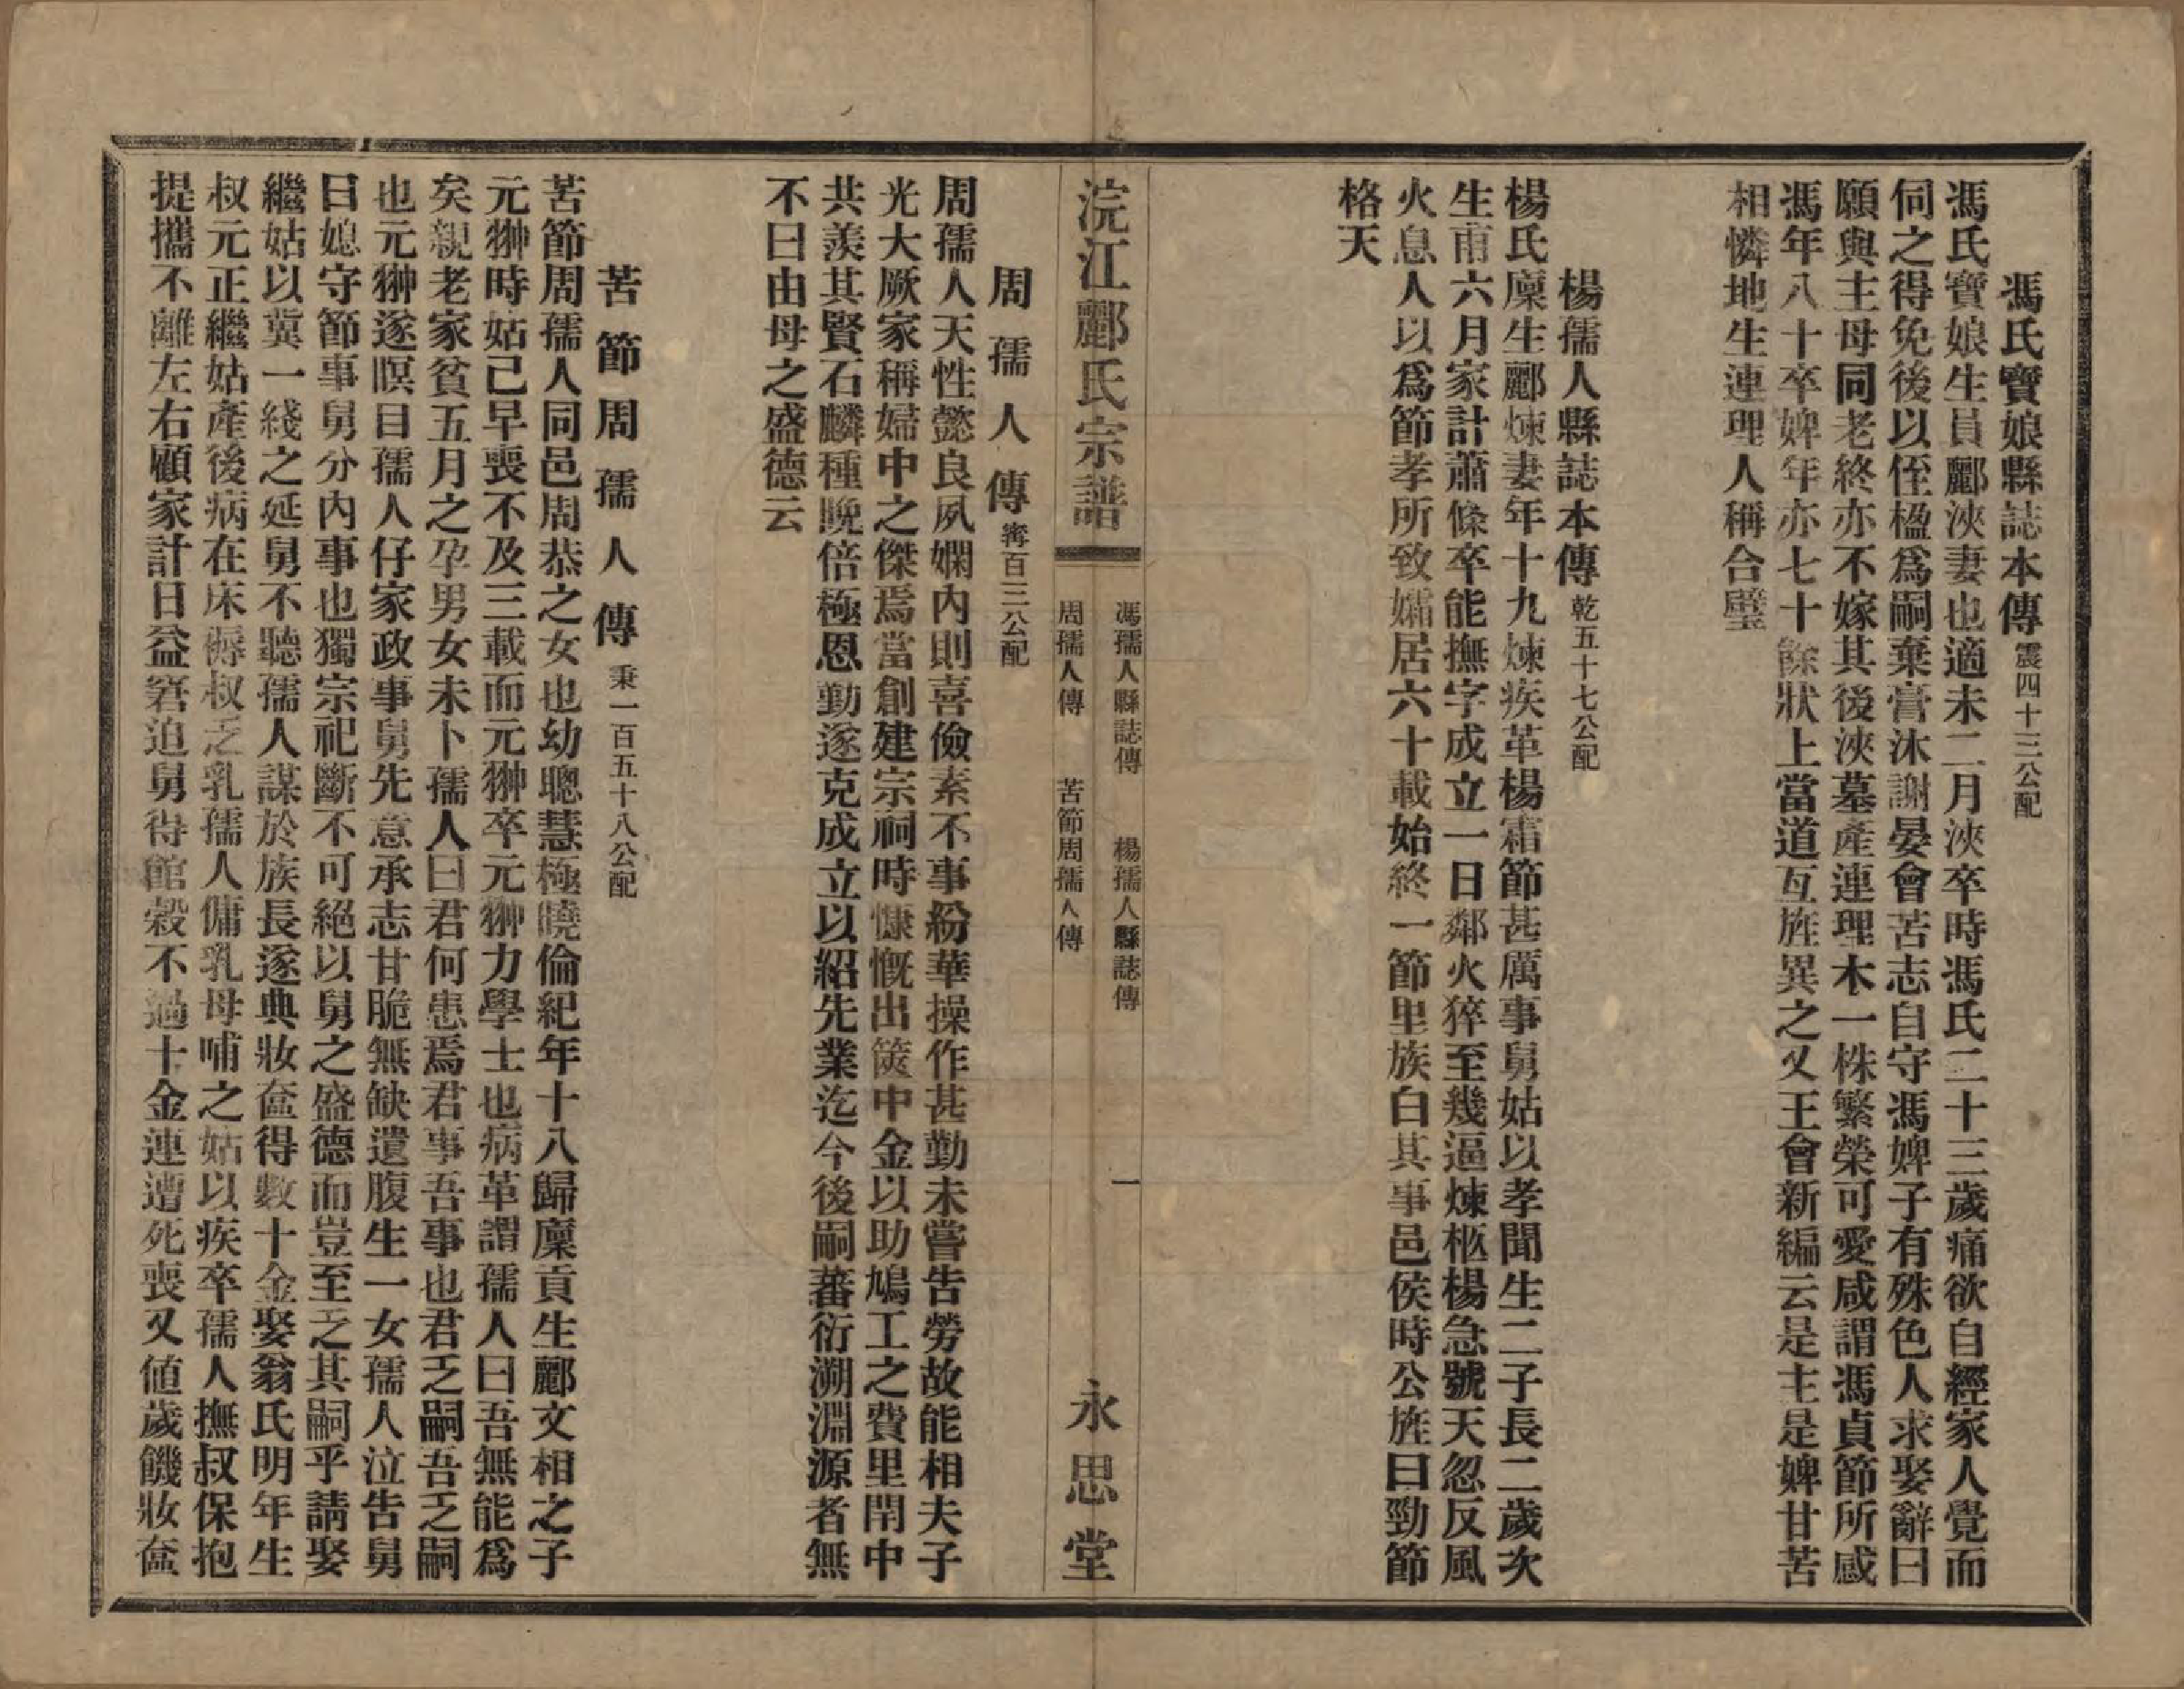 馮氏寶娘縣誌本傳 震四十三公配
馮氏寶娘生員酈浹妻也適未二月浹卒時馮氏二十三歲痛欲自經家人覺而
伺之得免後以侄楹爲嗣棄膏沐謝晏會苦志自守馮婢子有殊色人求娶辭曰
願與主母同老終亦不嫁其後浹墓產連理木一株繁榮可愛咸謂馮貞節所感
馮年八十卒婢年亦七十餘狀上當道互旌異之又王會新編云是主是婢甘苦
相憐地生連理人稱合璧
楊孺人縣誌本傳 乾五十七公配
楊氏廩生酈煉妻年十九煉疾革楊霜節甚厲事舅姑以孝聞生二子長二歲次
生甫六月家計蕭條卒能撫字成立一日鄰火猝至幾逼煉柩楊急號天忽反風
火息人以爲節孝所致孀居六十載始終一節里族白其事邑侯時公旌曰勁節
格天
浣江酈氏宗譜
馮孺人縣誌傳 楊孺人縣誌傳
周孺人傳 苦節周孺人傳
一
永思堂
周孺人傳 寗百二公配
周孺人天性懿良夙嫻內則喜儉素不事紛華操作甚勤未嘗告勞故能相夫子
光大厥家稱婦中之傑焉當創建宗祠時慷慨出篋中金以助鳩工之費里閈中
共羨其賢石麟種晚倍極恩勤遂克成立以紹先業迄今後嗣蕃衍溯淵源者無
不曰由母之盛德云
苦節周孺人傳 秉一百五十八公配
苦節周孺人同邑周恭之女也幼聰慧極曉倫紀年十八歸廩貢生酈文相之子
元翀時姑已早喪不及三載而元翀卒元翀力學士也病革謂孺人曰吾無能爲
矣親老家貧五月之孕男女未卜孺人曰君何患焉君事吾事也君乏嗣吾乏嗣
也元翀遂瞑目孺人仔家政事舅先意承志甘脆無缺遺腹生一女孺人泣告舅
曰媳守節事舅分內事也獨宗祀斷不可絕以舅之盛德而豈至乏其嗣乎請娶
繼姑以冀一綫之延舅不聽孺人謀於族長遂典妝奩得數十金娶翁氏明年生
叔元正繼姑產後病在床褥叔乏乳孺人傭乳母哺之姑以疾卒孺人撫叔保抱
提攜不離左右顧家計日益窘迫舅待館穀不過十金連遭死喪又値歲饑妝奩